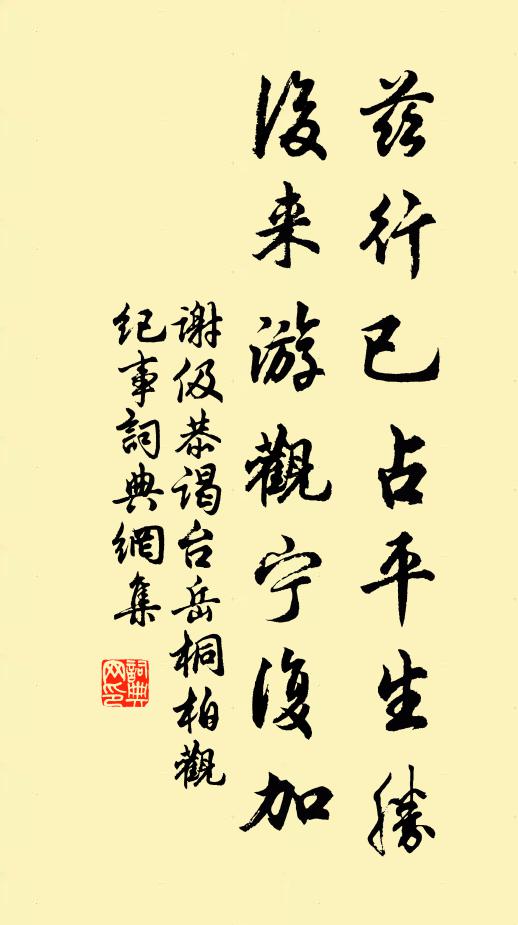 茲行已占平生勝
後来游觀宁復加
谢伋恭谒台岳桐柏觀
纪事詞典網集
詞典网印